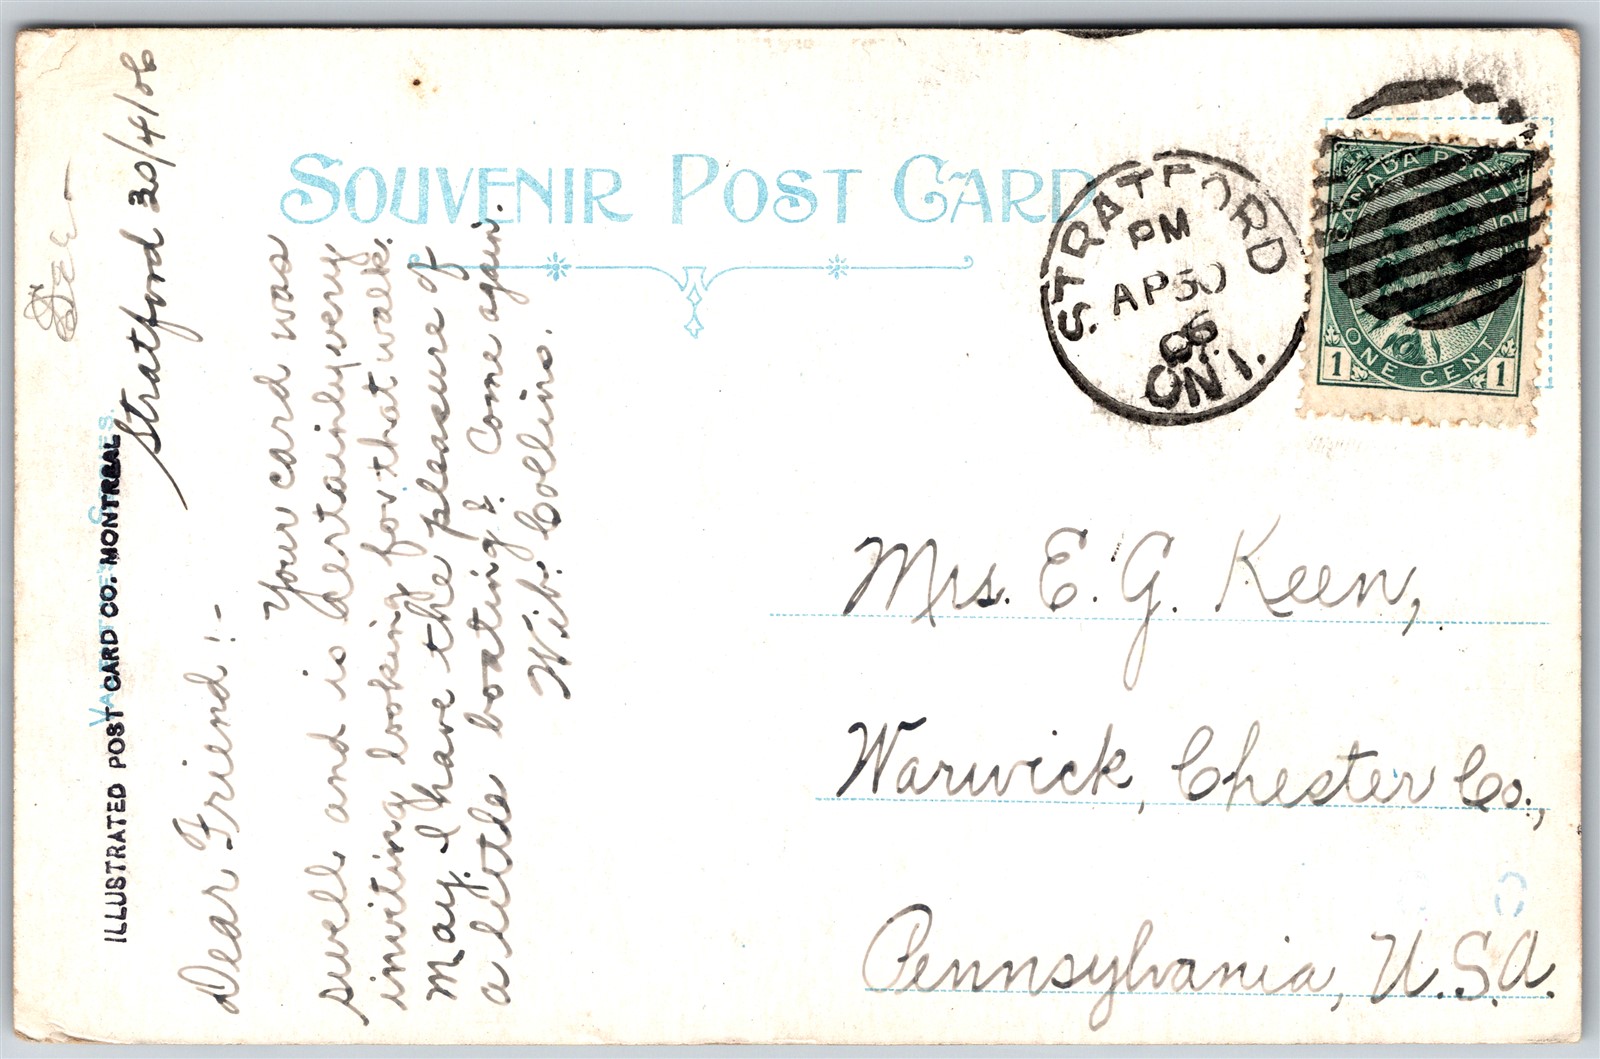 SOUVENIR POST CARD
STRATFORD
PM
AP 30
06
ONT.
CANADA
ONE CENT
1 1
ILLUSTRATED POST CARD CO. MONTREAL
Stratford 30/4/06
Dear Friend! -
Your card was
swell and is certainly very
inviting looking for that walk.
May I have the pleasure of
a little boating? Come again.
Wib. Collins.
Mrs. E. G. Keen,
Warwick, Chester Co.,
Pennsylvania, U.S.A.